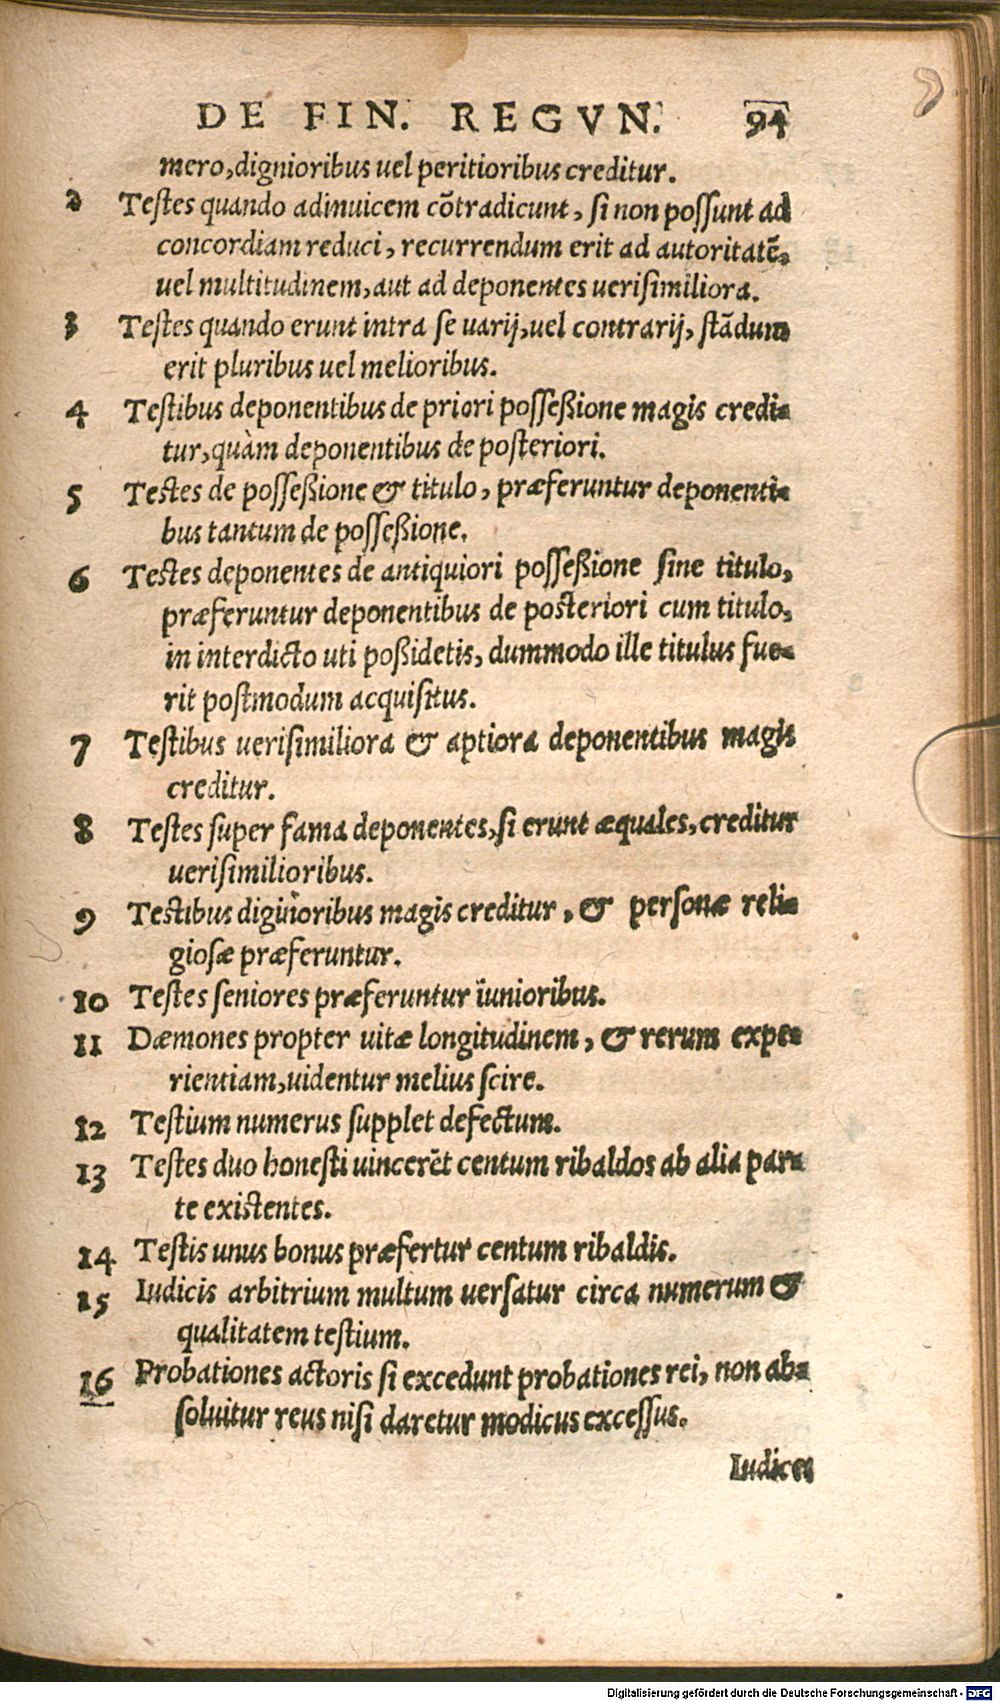 DE FIN. REGVN. 94
mero, dignioribus uel peritioribus creditur.
2 Testes quando adinuicem cõtradicunt, si non possunt ad
concordiam reduci, recurrendum erit ad autoritatẽ,
uel multitudinem, aut ad deponentes uerisimiliora.
3 Testes quando erunt intra se uarij, uel contrarij, stãdum
erit pluribus uel melioribus.
4 Testibus deponentibus de priori possessione magis credi-
tur, quàm deponentibus de posteriori.
5 Testes de possessione & titulo, præferuntur deponenti-
bus tantum de possessione.
6 Testes deponentes de antiquiori possessione sine titulo,
præferuntur deponentibus de posteriori cum titulo,
in interdicto uti possidetis, dummodo ille titulus fue-
rit postmodum acquisitus.
7 Testibus uerisimiliora & aptiora deponentibus magis
creditur.
8 Testes super fama deponentes, si erunt æquales, creditur
uerisimilioribus.
9 Testibus dignioribus magis creditur, & personæ reli-
giosæ præferuntur.
10 Testes seniores præferuntur iunioribus.
11 Dæmones propter uitæ longitudinem, & rerum expe-
rientiam, uidentur melius scire.
12 Testium numerus supplet defectum.
13 Testes duo honesti uincerẽt centum ribaldos ab alia par-
te existentes.
14 Testis unus bonus præfertur centum ribaldis.
15 Iudicis arbitrium multum uersatur circa numerum &
qualitatem testium.
16 Probationes actoris si excedunt probationes rei, non ab-
soluitur reus nisi daretur modicus excessus.
Iudices
Digitalisierung gefördert durch die Deutsche Forschungsgemeinschaft - DFG